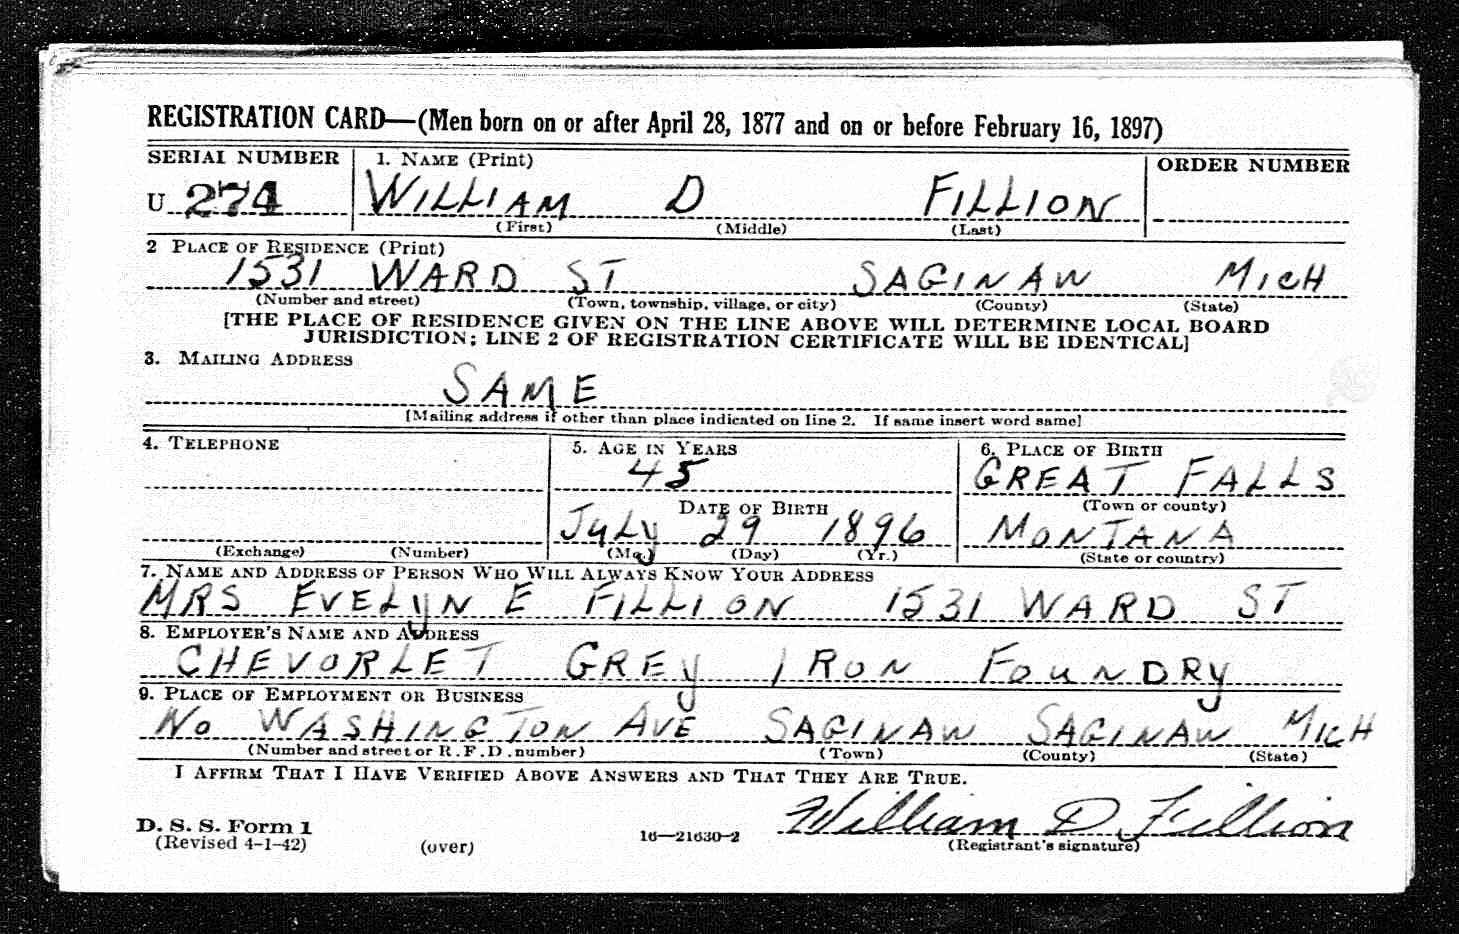 REGISTRATION CARD—(Men born on or after April 28, 1877 and on or before February 16, 1897)
SERIAL NUMBER 1. NAME (Print) ORDER NUMBER
U 274 WILLIAM D FILLION
(First) (Middle) (Last)
2 PLACE OF RESIDENCE (Print)
1531 WARD ST SAGINAW MICH
(Number and street) (Town, township, village, or city) (County) (State)
[THE PLACE OF RESIDENCE GIVEN ON THE LINE ABOVE WILL DETERMINE LOCAL BOARD
JURISDICTION; LINE 2 OF REGISTRATION CERTIFICATE WILL BE IDENTICAL]
3. MAILING ADDRESS
SAME
[Mailing address if other than place indicated on line 2. If same insert word same]
4. TELEPHONE 5. AGE IN YEARS 6. PLACE OF BIRTH
45 GREAT FALLS
DATE OF BIRTH (Town or county)
July 29 1896 MONTANA
(Exchange) (Number) (Mo.) (Day) (Yr.) (State or country)
7. NAME AND ADDRESS OF PERSON WHO WILL ALWAYS KNOW YOUR ADDRESS
MRS EVELYN E FILLION 1531 WARD ST
8. EMPLOYER'S NAME AND ADDRESS
CHEVORLET GREY IRON FOUNDRY
9. PLACE OF EMPLOYMENT OR BUSINESS
NO WASHINGTON AVE SAGINAW SAGINAW MICH
(Number and street or R. F. D. number) (Town) (County) (State)
I AFFIRM THAT I HAVE VERIFIED ABOVE ANSWERS AND THAT THEY ARE TRUE.
William D. Fillion
D. S. S. Form 1
(Revised 4-1-42) (over) 16—21630-2 (Registrant's signature)